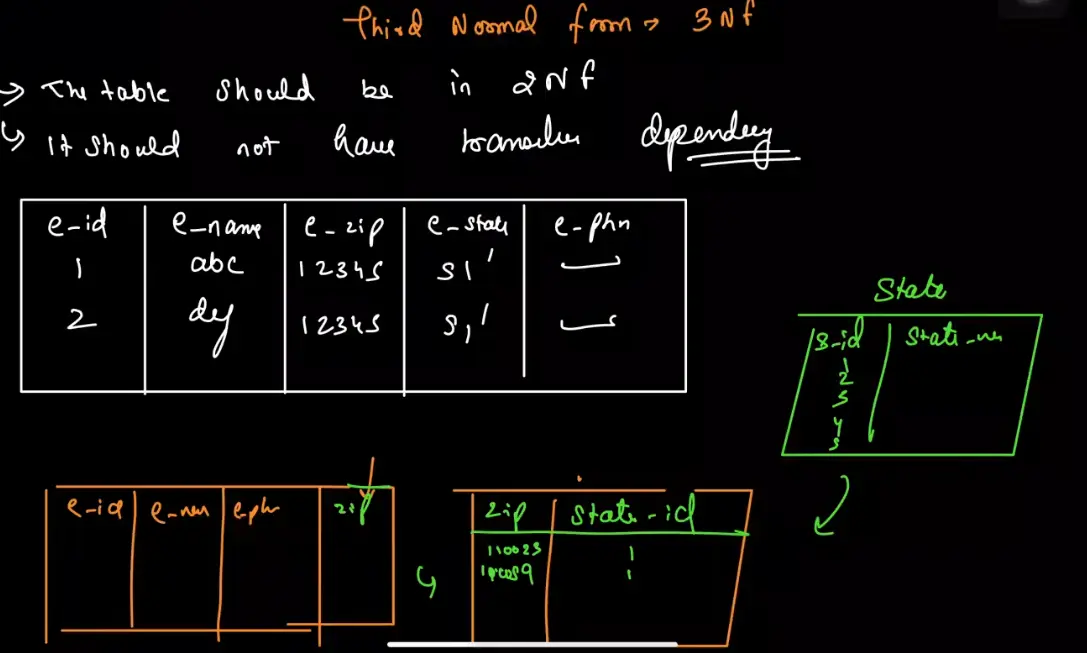 Third Normal form → 3Nf
→ The table should be in 2Nf
↳ It should not have transitive dependency
e-id e_name e-zip e-state e-phn
1 abc 12345 S1'
2 dey 12345 S1'
State
S-id State-nm
1
2
3
4
5
e-id e-nam e-phn zip
zip State-id
110023 1
1